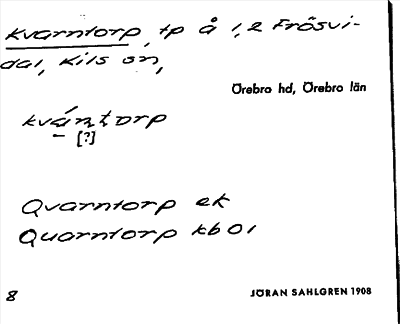 Kvarntorp, tp å 1,2 Frösvi-
dal, Kils sn,
Örebro hd, Örebro län
kvá̱ṇṭorp
[?]
Qvarntorp ek
Quarntorp kb 01
8
JÖRAN SAHLGREN 1908